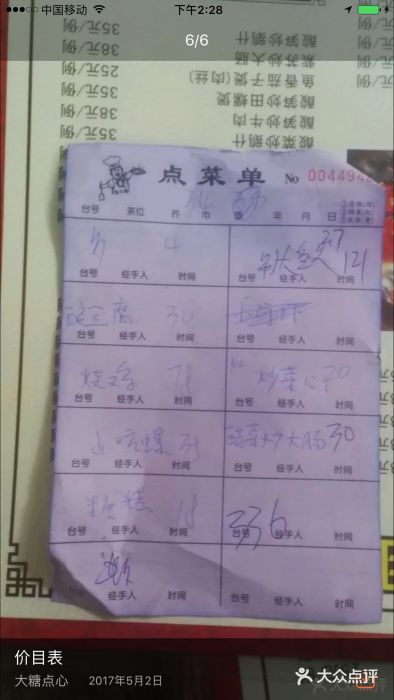 中国移动
下午2:28
6/6
酸笋炒鹅什
35元/例
紫苏炒大肠
38元/例
鱼香茄子煲(肉丝)
25元/例
酸笋田螺煲
38元/例
酸笋炒牛肉
35元/例
酸菜炒鹅什
35元/例
点菜单
No 004494
台号 茶位 芥 巾 饭 年 月 日
4
台号 经手人 时间
台号 经手人 时间
豆腐 30
台号 经手人 时间
台号 经手人 时间
烧鸡 78
台号 经手人 时间
炒菜心 20
台号 经手人 时间
山坑螺 35
台号 经手人 时间
酸菜炒大肠 30
台号 经手人 时间
糍糕 18
台号 经手人 时间
336
台号 经手人 时间
台号 经手人 时间
台号 经手人 时间
价目表
大糖点心
2017年5月2日
大众点评